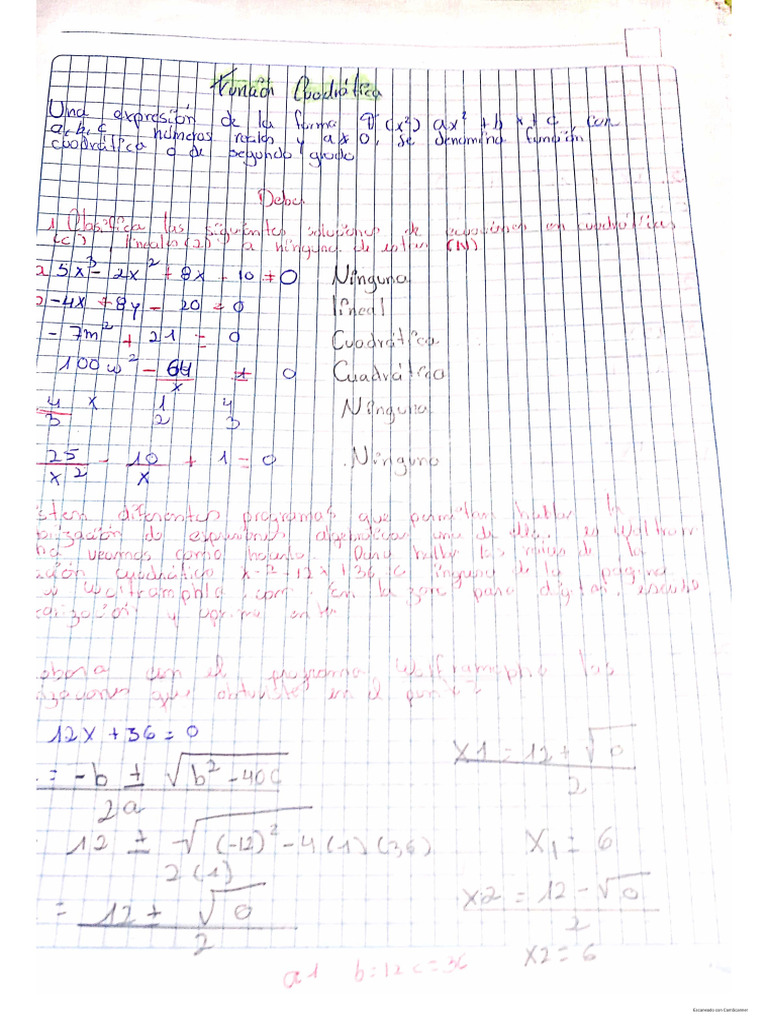 Función Cuadrática
Una expresión de la forma (x²) ax² + b x + c con
a, b, c números reales y a x 0, se denomina función
cuadrática o de segundo grado
Deber
1 las siguientes de en cuadráticas
(C), lineales (2) a ninguna de estas (N)
2 5x³ - 2x² + 8x - 10 + 0 Ninguna
2 - 4x + 8y - 20 = 0 lineal
- 7m² + 21 = 0 Cuadrática
100w² - 64/x ± 0 Cuadrática
4/3 x 1/2 4/3 Ninguna
25/x² - 10/x + 1 = 0 .Ninguno
sten diferentes programas que permitan hallar la
de expresiones algebraicas una de
veamos como hacerlo. Para hallar las raices de la
ción cuadrático x-² + 12x + 36 de la pagina
com. En la para digitar, escribe
y
bora en el programa las
que obtuviste en el punto
12x + 36 = 0
= -b ± √b² - 40c
2a
12 ± √(-12)² - 4(1)(36)
2(1)
= 12 ± √0
2
x1 = 12 + √0
2
x₁ = 6
x2 = 12 - √0
2
x2 = 6
a 1 b = 12 c = 36
Escaneado con CamScanner